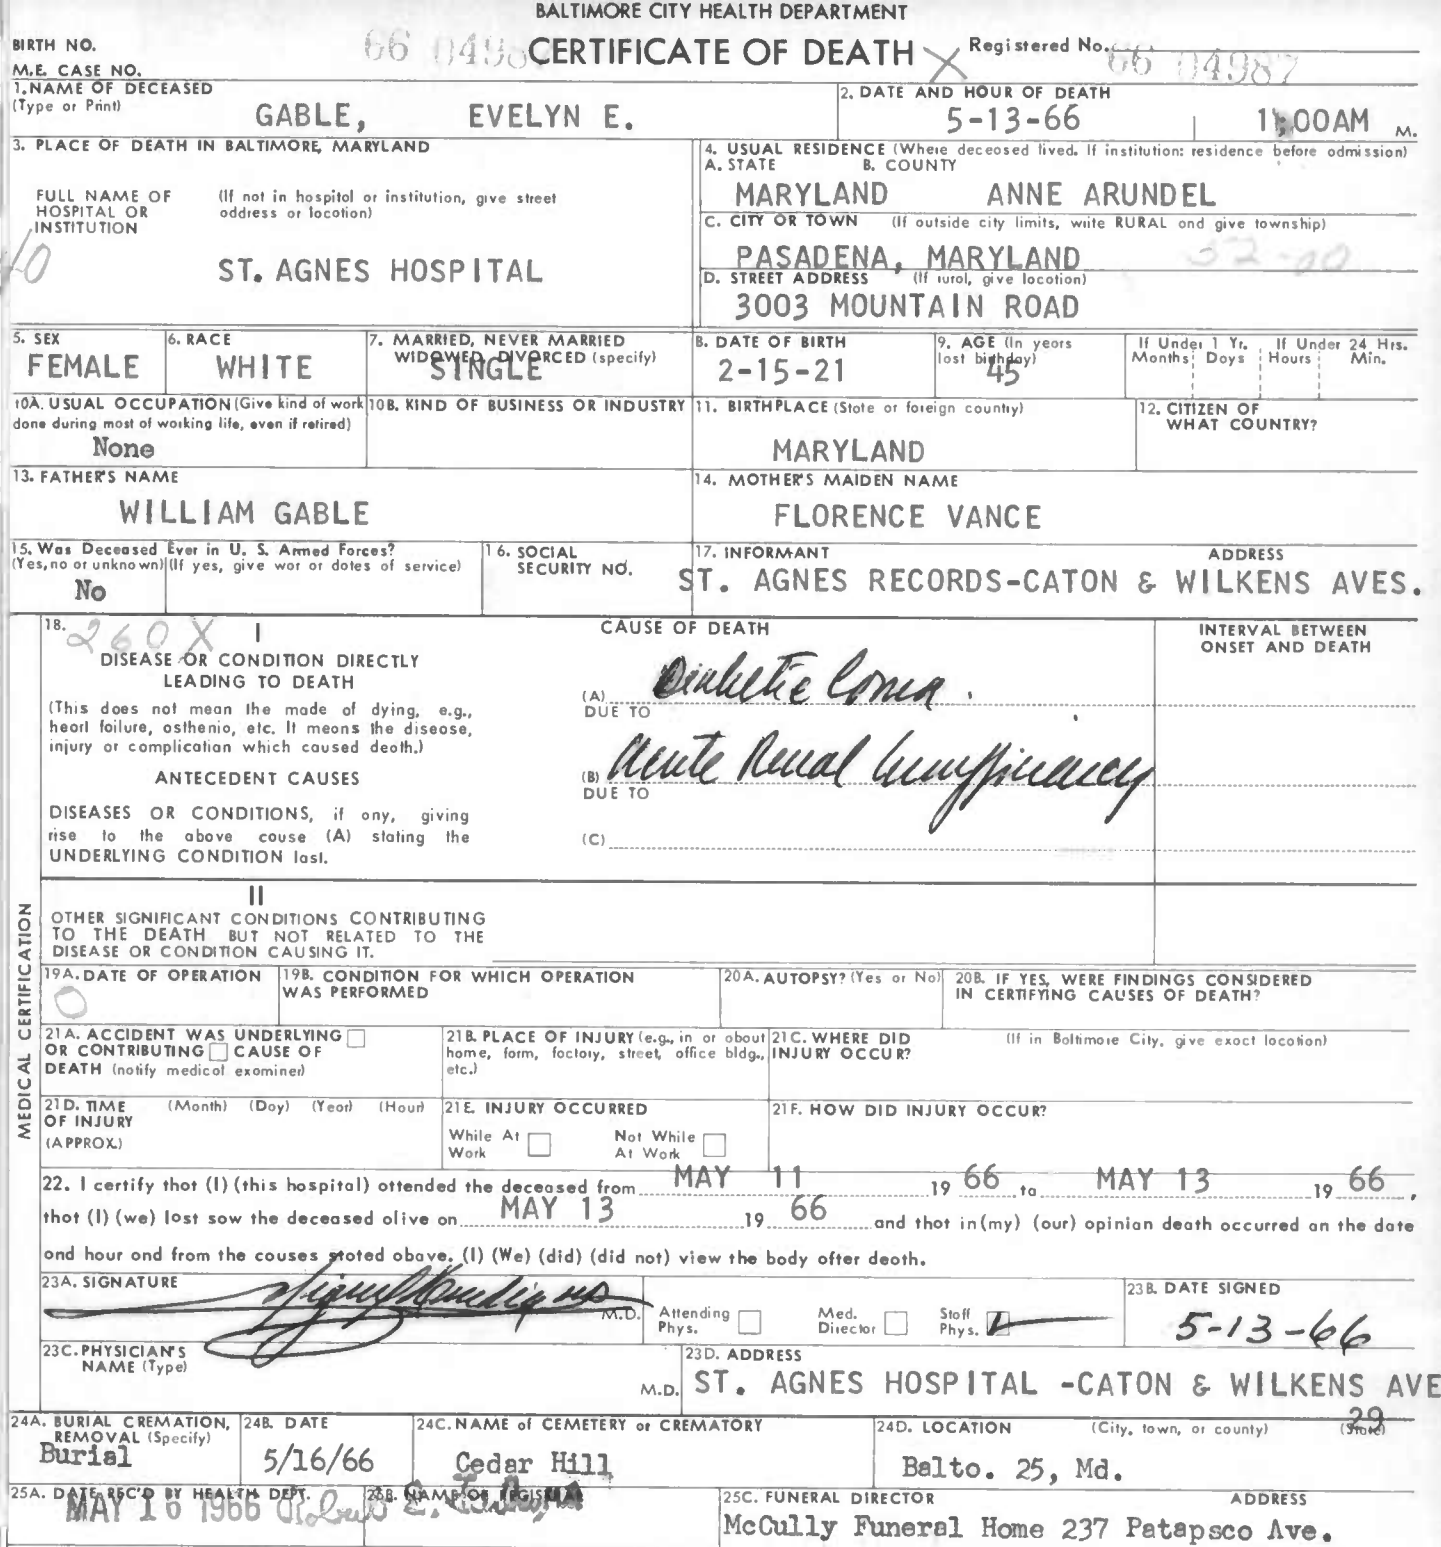 BALTIMORE CITY HEALTH DEPARTMENT
BIRTH NO. CERTIFICATE OF DEATH X Registered No. 66 04987
M.E. CASE NO.
1. NAME OF DECEASED (Type or Print) GABLE, EVELYN E.
2. DATE AND HOUR OF DEATH 5-13-66 11:00AM M.
3. PLACE OF DEATH IN BALTIMORE, MARYLAND
FULL NAME OF HOSPITAL OR INSTITUTION (If not in hospital or institution, give street address or location)
ST. AGNES HOSPITAL
4. USUAL RESIDENCE (Where deceased lived. If institution: residence before admission)
A. STATE B. COUNTY
MARYLAND ANNE ARUNDEL
C. CITY OR TOWN (If outside city limits, write RURAL and give township)
PASADENA, MARYLAND 32-00
D. STREET ADDRESS (If rural, give location)
3003 MOUNTAIN ROAD
5. SEX FEMALE
6. RACE WHITE
7. MARRIED, NEVER MARRIED WIDOWED, DIVORCED (specify) SINGLE
8. DATE OF BIRTH 2-15-21
9. AGE (In years last birthday) 45
If Under 1 Yr. Months Days If Under 24 Hrs. Hours Min.
10A. USUAL OCCUPATION (Give kind of work done during most of working life, even if retired) None
10B. KIND OF BUSINESS OR INDUSTRY
11. BIRTHPLACE (State or foreign country) MARYLAND
12. CITIZEN OF WHAT COUNTRY?
13. FATHER'S NAME WILLIAM GABLE
14. MOTHER'S MAIDEN NAME FLORENCE VANCE
15. Was Deceased Ever in U. S. Armed Forces? (Yes, no or unknown) (If yes, give war or dates of service) No
16. SOCIAL SECURITY NO.
17. INFORMANT ADDRESS
ST. AGNES RECORDS-CATON & WILKENS AVES.
MEDICAL CERTIFICATION
18. 260X I CAUSE OF DEATH INTERVAL BETWEEN ONSET AND DEATH
DISEASE OR CONDITION DIRECTLY LEADING TO DEATH
(This does not mean the mode of dying, e.g., heart failure, asthenia, etc. It means the disease, injury or complication which caused death.)
(A) Diabetic Coma.
DUE TO
ANTECEDENT CAUSES
(B) Acute Renal Insufficiency
DUE TO
DISEASES OR CONDITIONS, if any, giving rise to the above cause (A) stating the UNDERLYING CONDITION last.
(C)
II
OTHER SIGNIFICANT CONDITIONS CONTRIBUTING TO THE DEATH BUT NOT RELATED TO THE DISEASE OR CONDITION CAUSING IT.
19A. DATE OF OPERATION 0
19B. CONDITION FOR WHICH OPERATION WAS PERFORMED
20A. AUTOPSY? (Yes or No)
20B. IF YES, WERE FINDINGS CONSIDERED IN CERTIFYING CAUSES OF DEATH?
21A. ACCIDENT WAS UNDERLYING OR CONTRIBUTING CAUSE OF DEATH (notify medical examiner)
21B. PLACE OF INJURY (e.g., in or about home, farm, factory, street, office bldg., etc.)
21C. WHERE DID INJURY OCCUR? (If in Baltimore City, give exact location)
21D. TIME OF INJURY (APPROX.) (Month) (Day) (Year) (Hour)
21E. INJURY OCCURRED While At Work Not While At Work
21F. HOW DID INJURY OCCUR?
22. I certify that (I) (this hospital) attended the deceased from MAY 11 19 66 to MAY 13 19 66,
that (I) (we) last saw the deceased alive on MAY 13 19 66 and that in (my) (our) opinion death occurred on the date
and hour and from the causes stated above. (I) (We) (did) (did not) view the body after death.
23A. SIGNATURE M.D.
Attending Phys. Med. Director Staff Phys.
23B. DATE SIGNED 5-13-66
23C. PHYSICIAN'S NAME (Type) M.D.
23D. ADDRESS ST. AGNES HOSPITAL -CATON & WILKENS AVE 29
24A. BURIAL CREMATION, REMOVAL (Specify) Burial
24B. DATE 5/16/66
24C. NAME of CEMETERY or CREMATORY Cedar Hill
24D. LOCATION (City, town, or county) (State) Balto. 25, Md.
25A. DATE REC'D BY HEALTH DEPT. MAY 16 1966
25B. NAME OF REGISTRAR Robert E.
25C. FUNERAL DIRECTOR ADDRESS
McCully Funeral Home 237 Patapsco Ave.